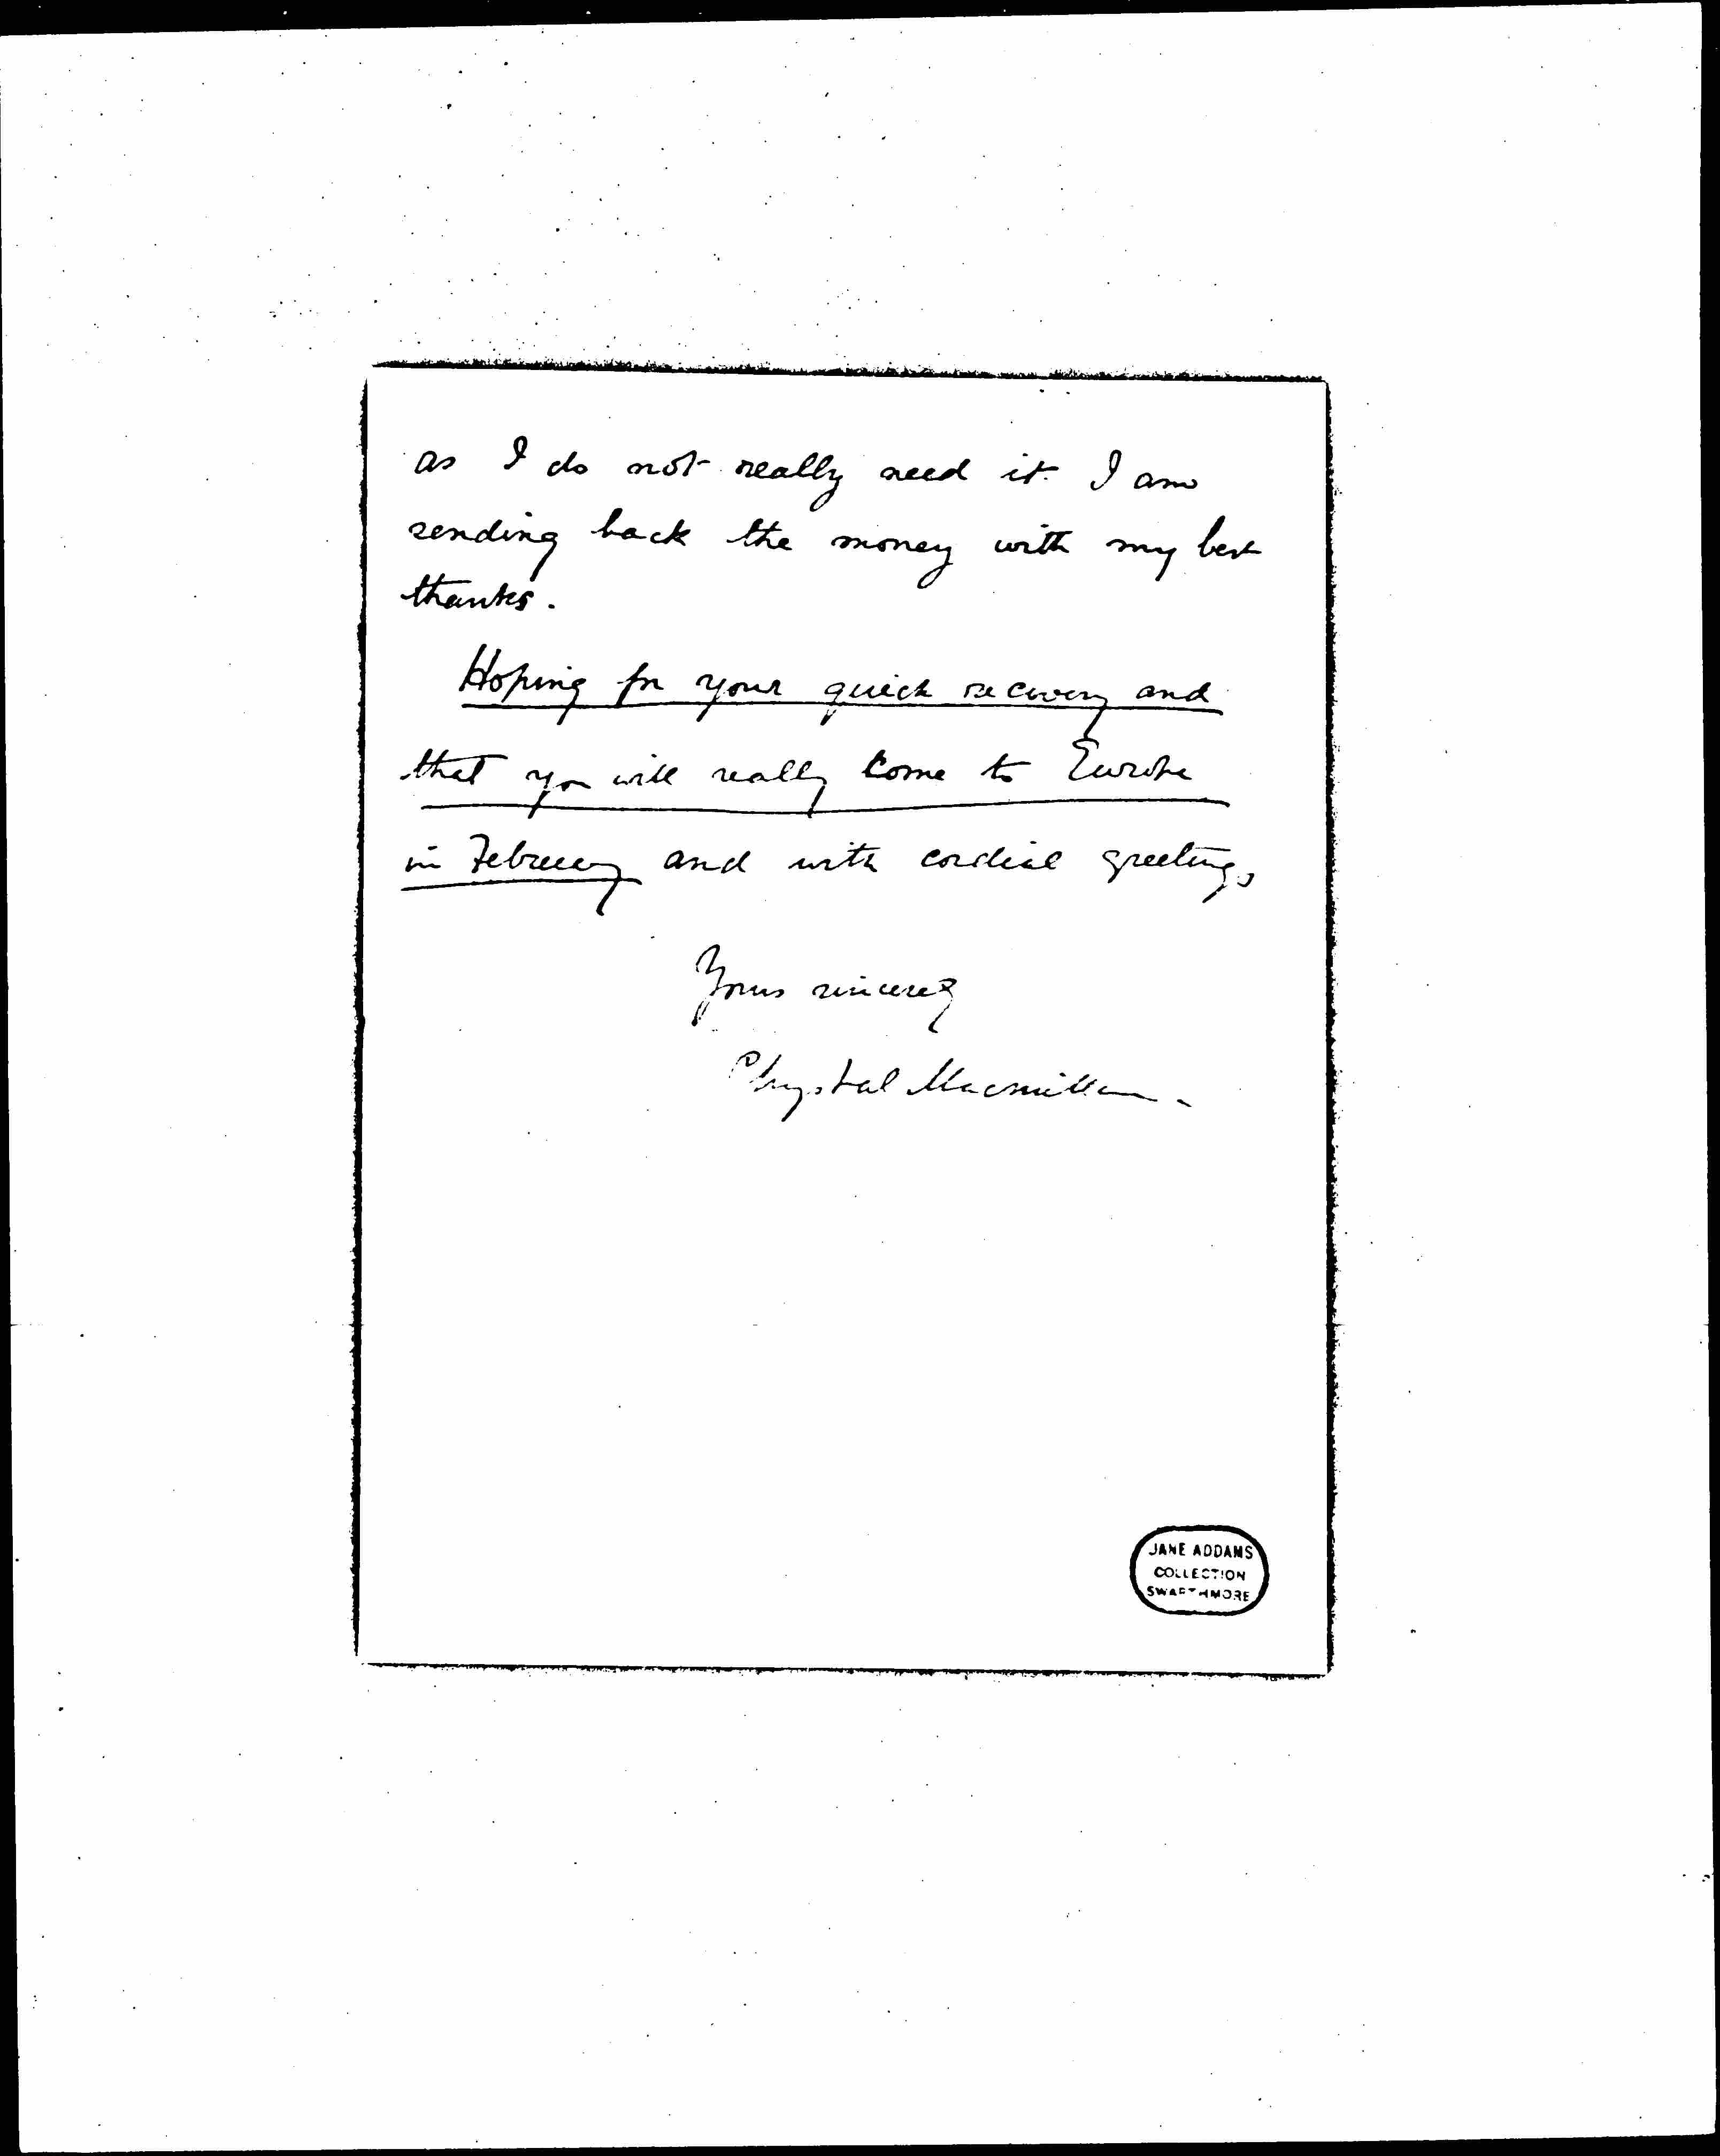 as I do not really need it. I am
sending back the money with my best
thanks.
Hoping for your quick recovery and
that you will really come to Europe
in February and with cordial greetings
Yours sincerely
Chrystal Macmillan.
JANE ADDAMS
COLLECTION
SWARTHMORE